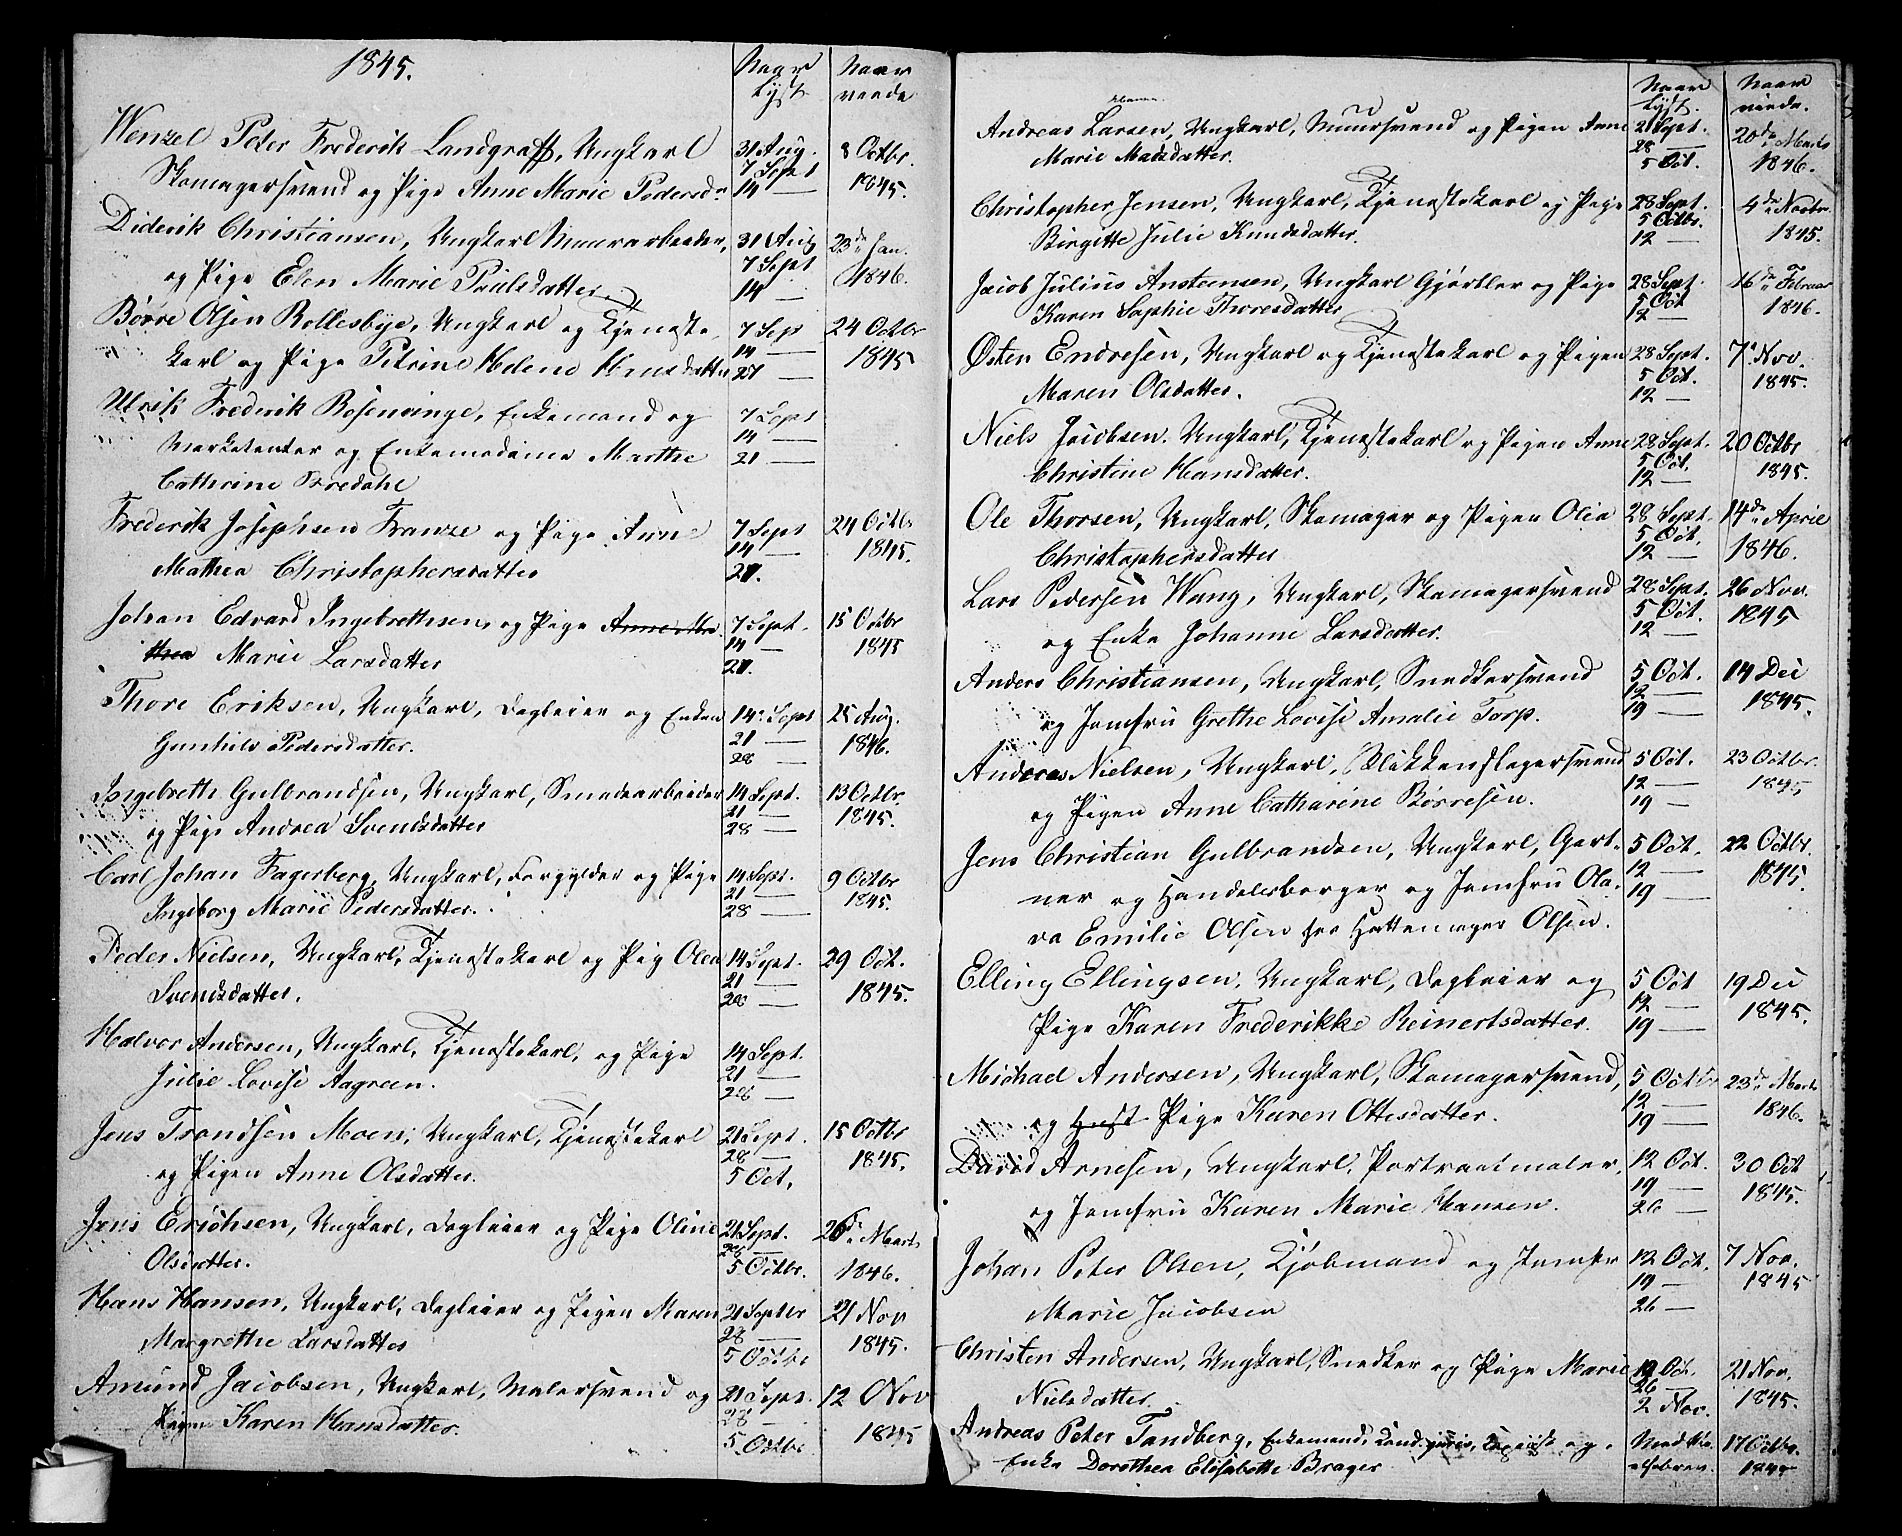 1845.
Naar Lyst
Naar viede
Wenzel Peter Frederik Landgraff, Ungkarl 31 Aug. 8 Octbr.
7 Sept
Skomagersvend og Pige Anne Marie Pedersdr 14 — 1845.
Diderik Christiansen, Ungkarl Muurarbeider, 31 Aug 23de Jan.
7 Sept
og Pige Elen Marie Paulsdatter 14 — 1846.
Børre Olsen Rollesbye, Ungkarl og Tjeneste 7 Sep 24 Octbr
14 —
karl og Pige Petrine Helene Hansdatter 21 — 1845
Ulrik Frederik Rosenvinge, Enkemand og 7 Sept
14 —
Marketenter og Enkemadame Marthe 21 —
Cathrine Bredahl
Frederik Josephsen Franze og Pige Anne 7 Sept 24 Octb
14 — 1845.
Mathea Christophersdatter 21.
Johan Edvard Ingebrethsen, og Pige Anne Ma 7 Sept. 15 Octbr
14 — 1845
thea Marie Larsdatter 21.
Thore Eriksen, Ungkarl, Dagleier og Enken 14. Sept 25 Aug.
21 — 1846.
Gunhild Pedersdatter. 28 —
Ingebreth Gulbrandsen, Ungkarl, Smedearbeider 14 Sept. 13 Octbr.
21 — 1845.
og Pige Andrea Svendsdatter 28 —
Carl Johan Fagerberg, Ungkarl, Forgylder og Pige 14 Sept. 9 Octbr
21 — 1845.
Ingeborg Marie Pedersdatter. 28 —
Peder Nielsen, Ungkarl, Tjenestekarl og Pig Olea 14 Sept. 29 Oct.
21 —
Svendsdatter. 28 — 1845.
Halvor Andersen, Ungkarl, Tjenestekarl, og Pige 14 Sept.
21 —
Julie Lovise Aagreen. 28 —
Jens Trondsen Moen, Ungkarl, Tjenestekarl 21 Sept. 15 Octbr
28 — 1845.
og Pigen Anne Olsdatter. 5 Oct.
Jens Erichsen, Ungkarl, Dagleier og Pige Oline 21 Sept. 26de Marts
28 —
Olsdatter. 5 Octbr. 1846.
Hans Hansen, Ungkarl, Dagleier og Pigen Maren 21 Septbr 21 Nov
28 — 1845.
Margrethe Larsdatter 5 Octbr
Amund Jacobsen, Ungkarl, Malersvend og 21 Sept. 12 Nov
28 —
Pigen Karen Hansdatter. 5 Octbr. 1845
Naar Lyst.
Naar viede.
Andreas Larsen, Ungkarl, Muursvend og Pigen Anne 21 Sept. 20de Marts
28 —
Marie Madsdatter. 5 Oct. 1846.
Christopher Jensen, Ungkarl, Tjenestekarl og Pige 28 Sept. 4de Novbr.
5 Octbr.
Birgitte Julie Knudsdatter. 12 — 1845.
Jacob Julius Anstensen, Ungkarl Gjørtler og Pige 28 Sept. 16de Februar
5 Oct
Karen Sophie Thoresdatter 12 — 1846.
Østen Endresen, Ungkarl og Tjenestekarl og Pigen 28 Sept. 7. Nov.
5 Oct. 1845.
Maren Olsdatter. 12 —
Niels Jacobsen. Ungkarl, Tjenestekarl og Pigen Anne 28 Sept. 20 Octbr
5 Oct. 1845.
Christine Hansdatter. 12 —
Ole Thorsen, Ungkarl, Skomager og Pigen Olia 28 Sept. 14de April
5 Oct.
Christophersdatter 12 — 1846.
Lars Pedersen Wang, Ungkarl, Skomagersvend 28 Sept. 26 Nov.
5 Oct. 1845
og Enke Johanne Larsdatter. 12 —
Anders Christiansen, Ungkarl, Snedkersvend 5 Oct. 14 Dec
12 — 1845.
og Jomfru Grethe Lovise Amalie Torp. 19 —
Andreas Nielsen, Ungkarl, Blikkenslagersvend 5 Oct. 23 Octbr.
12 — 1845
og Pigen Anne Catharine Børresen. 19 —
Jens Christian Gulbrandsen, Ungkarl, Gart- 5 Oct. 22 Octbr.
12 — 1845.
ner og Handelsborger og Jomfru Ola- 19 —
va Emilie Olsen hos Hattemager Olsen.
Elling Ellingsen, Ungkarl, Dagleier og 5 Oct 19 Dec
12 — 1845.
Pige Karen Frederikke Reinertsdatter. 19 —
Michael Andersen, Ungkarl, Skomagersvend, 5 Octbr 23de Marts
12 — 1846.
og Pige Karen Ottesdatter. 19 —
David Arnesen, Ungkarl, Portraitmaler, 12 Oct. 30 Oct
19 — 1845.
og Jomfru Karen Marie Hansen. 26 —
Johan Peter Olsen, Kjøbmand og Jomfr 12 Oct. 7 Nov.
19 — 1845
Marie Jacobsen 26 —
Christen Andersen, Ungkarl, Snedker og Pige Marie 19 Oct. 21 Nov.
26 — 1845.
Nielsdatter. 2 Nov.
Andreas Peter Tandberg, Enkemand, Cand. juris, og 17 Octbr.
Enke Dorothea Elisabette Brager 1845